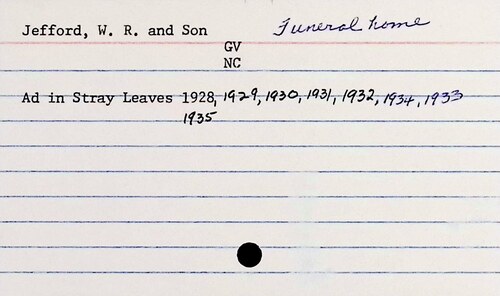 Jefford, W. R. and Son Funeral home
GV
NC
Ad in Stray Leaves 1928, 1929, 1930, 1931, 1932, 1934, 1933
1935